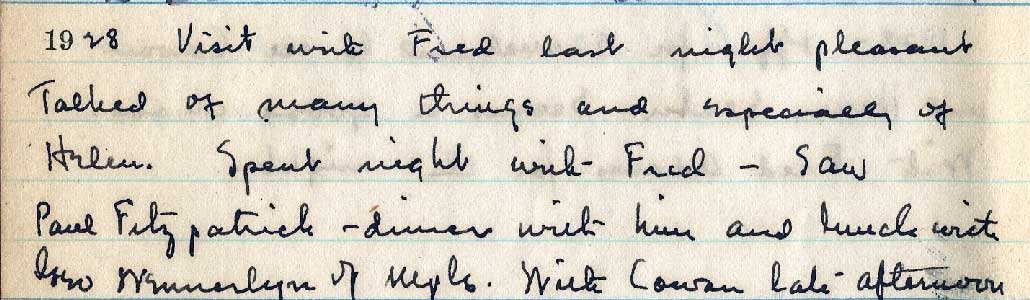 1928 Visit with Fred last night pleasant
Talked of many things and especially of
Helen. Spent night with Fred – Saw
Paul Fitzpatrick – dinner with him and lunch with
Geo of Mpls. With Cowan late afternoon